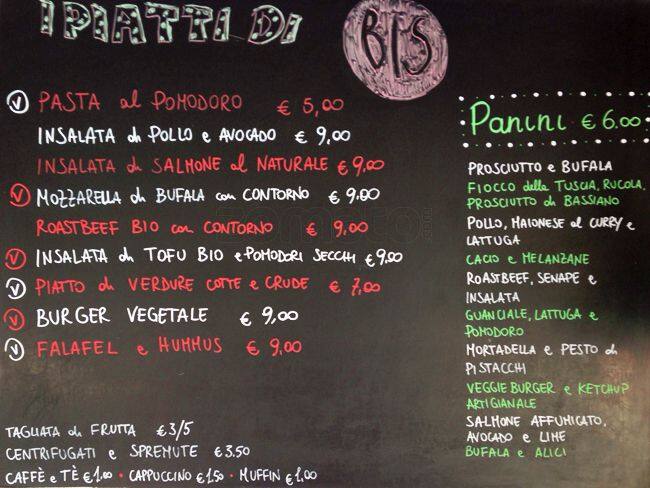 I PIATTI DI BIS
Ⓥ PASTA al POMODORO € 5,00
INSALATA di POLLO e AVOCADO € 9,00
INSALATA di SALMONE al NATURALE € 9,00
Ⓥ MOZZARELLA di BUFALA con CONTORNO € 9.00
ROASTBEEF BIO con CONTORNO € 9,00
Ⓥ INSALATA di TOFU BIO e POMODORI SECCHI € 9,00
Ⓥ PIATTO di VERDURE COTTE e CRUDE € 7,00
Ⓥ BURGER VEGETALE € 9,00
Ⓥ FALAFEL e HUMMUS € 9,00
TAGLIATA di FRUTTA € 3/5
CENTRIFUGATI e SPREMUTE € 3.50
CAFFÈ e TÈ € 1.00 • CAPPUCCINO € 1.50 • MUFFIN € 1,00
Panini € 6.00
PROSCIUTTO e BUFALA
FIOCCO della TUSCIA, RUCOLA,
PROSCIUTTO di BASSIANO
POLLO, MAIONESE al CURRY e
LATTUGA
CACIO e MELANZANE
ROASTBEEF, SENAPE e
INSALATA
GUANCIALE, LATTUGA e
POMODORO
MORTADELLA e PESTO di
PISTACCHI
VEGGIE BURGER e KETCHUP
ARTIGIANALE
SALMONE AFFUMICATO,
AVOCADO e LIME
BUFALA e ALICI